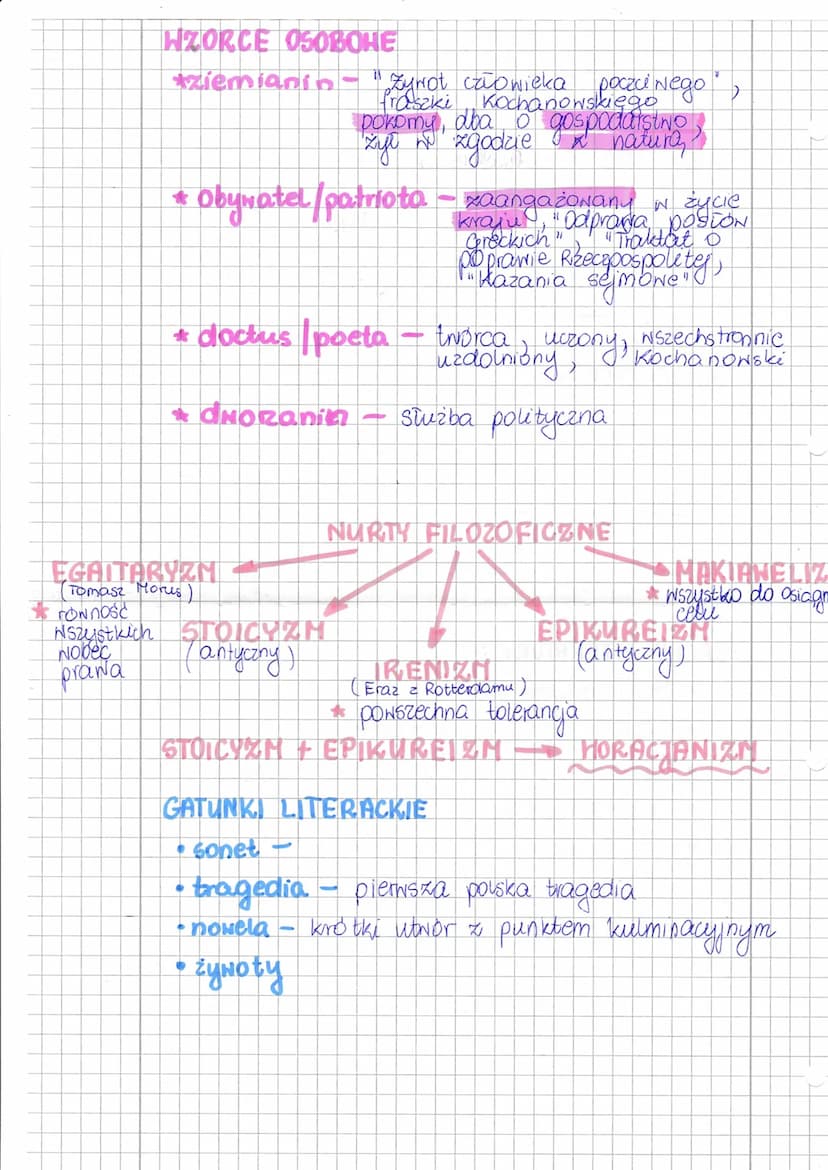 WZORCE OSOBOWE
*ziemianin – "Żywot człowieka poczciwego",
fraszki Kochanowskiego
pokorny, dba o gospodarstwo,
żył w zgodzie z naturą
* obywatel/patriota – zaangażowany w życie
kraju, "Odprawa posłów
Greckich", "Traktat o
poprawie Rzeczpospolitej,
"Kazania sejmowe"
* doctus/poeta – twórca, uczony, wszechstronnie
uzdolniony, Kochanowski
* dworzanin – służba polityczna
NURTY FILOZOFICZNE
EGAITARYZM
(Tomasz Morus)
* równość
wszystkich
wobec
prawa
STOICYZM
(antyczny)
IRENIZM
(Eraz z Rotterdamu)
* powszechna tolerancja
EPIKUREIZM
(antyczny)
MAKIAWELIZ
* wszystko do osiągn
celu
STOICYZM + EPIKUREIZM → HORACJANIZM
GATUNKI LITERACKIE
• sonet –
• tragedia – pierwsza polska tragedia
• nowela – krótki utwór z punktem kulminacyjnym
• żywoty